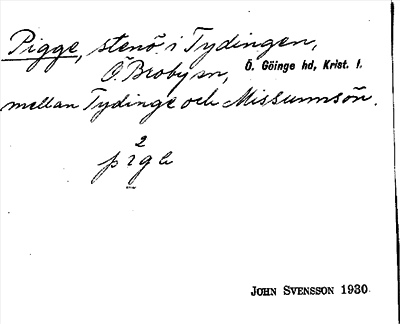 Pigge, stenö i Tydingen,
Ö. Broby sn, Ö. Göinge hd, Krist. l.
mellan Tydinge och Missunnsön.
2
JOHN SVENSSON 1930.